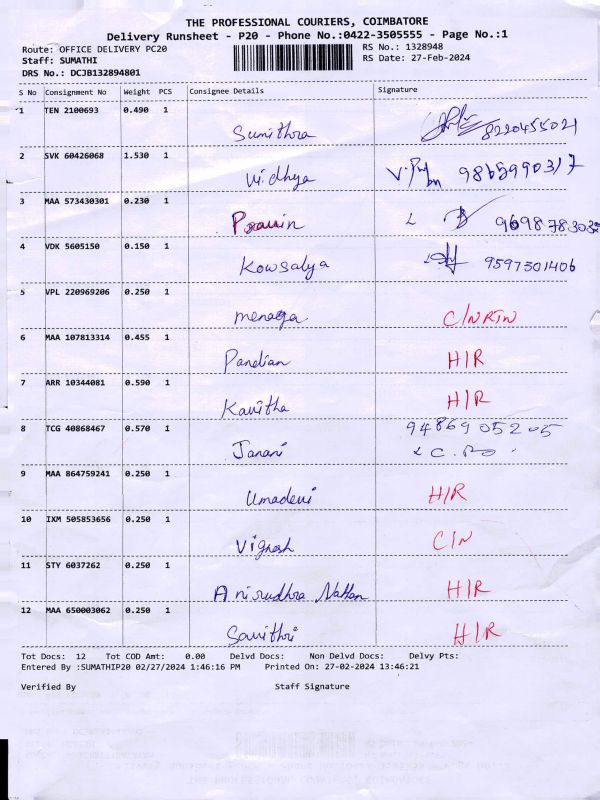 THE PROFESSIONAL COURIERS, COIMBATORE
Delivery Runsheet - P20 - Phone No.:0422-3505555 - Page No.:1
Route: OFFICE DELIVERY PC20 RS No.: 1328948
Staff: SUMATHI RS Date: 27-Feb-2024
DRS No.: DCJB132894801
S No Consignment No Weight PCS Consignee Details Signature
1 TEN 2100693 0.490 1 Sumithra 8220455021
2 SVK 60426068 1.530 1 Vidhya 9865990317
3 MAA 573430301 0.230 1 Pravin
4 VDK 5605150 0.150 1 Kowsalya 9597301406
5 VPL 220969206 0.250 1 menaga C/NRTN
6 MAA 107813314 0.455 1 Pandian H/R
7 ARR 10344081 0.590 1 Kavitha H/R
8 TCG 40868467 0.570 1 Janani 9486905205
9 MAA 864759241 0.250 1 Umadevi H/R
10 IXM 505853656 0.250 1 Vignesh C/N
11 STY 6037262 0.250 1 Anirudhra Nathan H/R
12 MAA 650003062 0.250 1 Savithri H/R
Tot Docs: 12 Tot COD Amt: 0.00 Delvd Docs: Non Delvd Docs: Delvy Pts:
Entered By :SUMATHIP20 02/27/2024 1:46:16 PM Printed On: 27-02-2024 13:46:21
Verified By Staff Signature